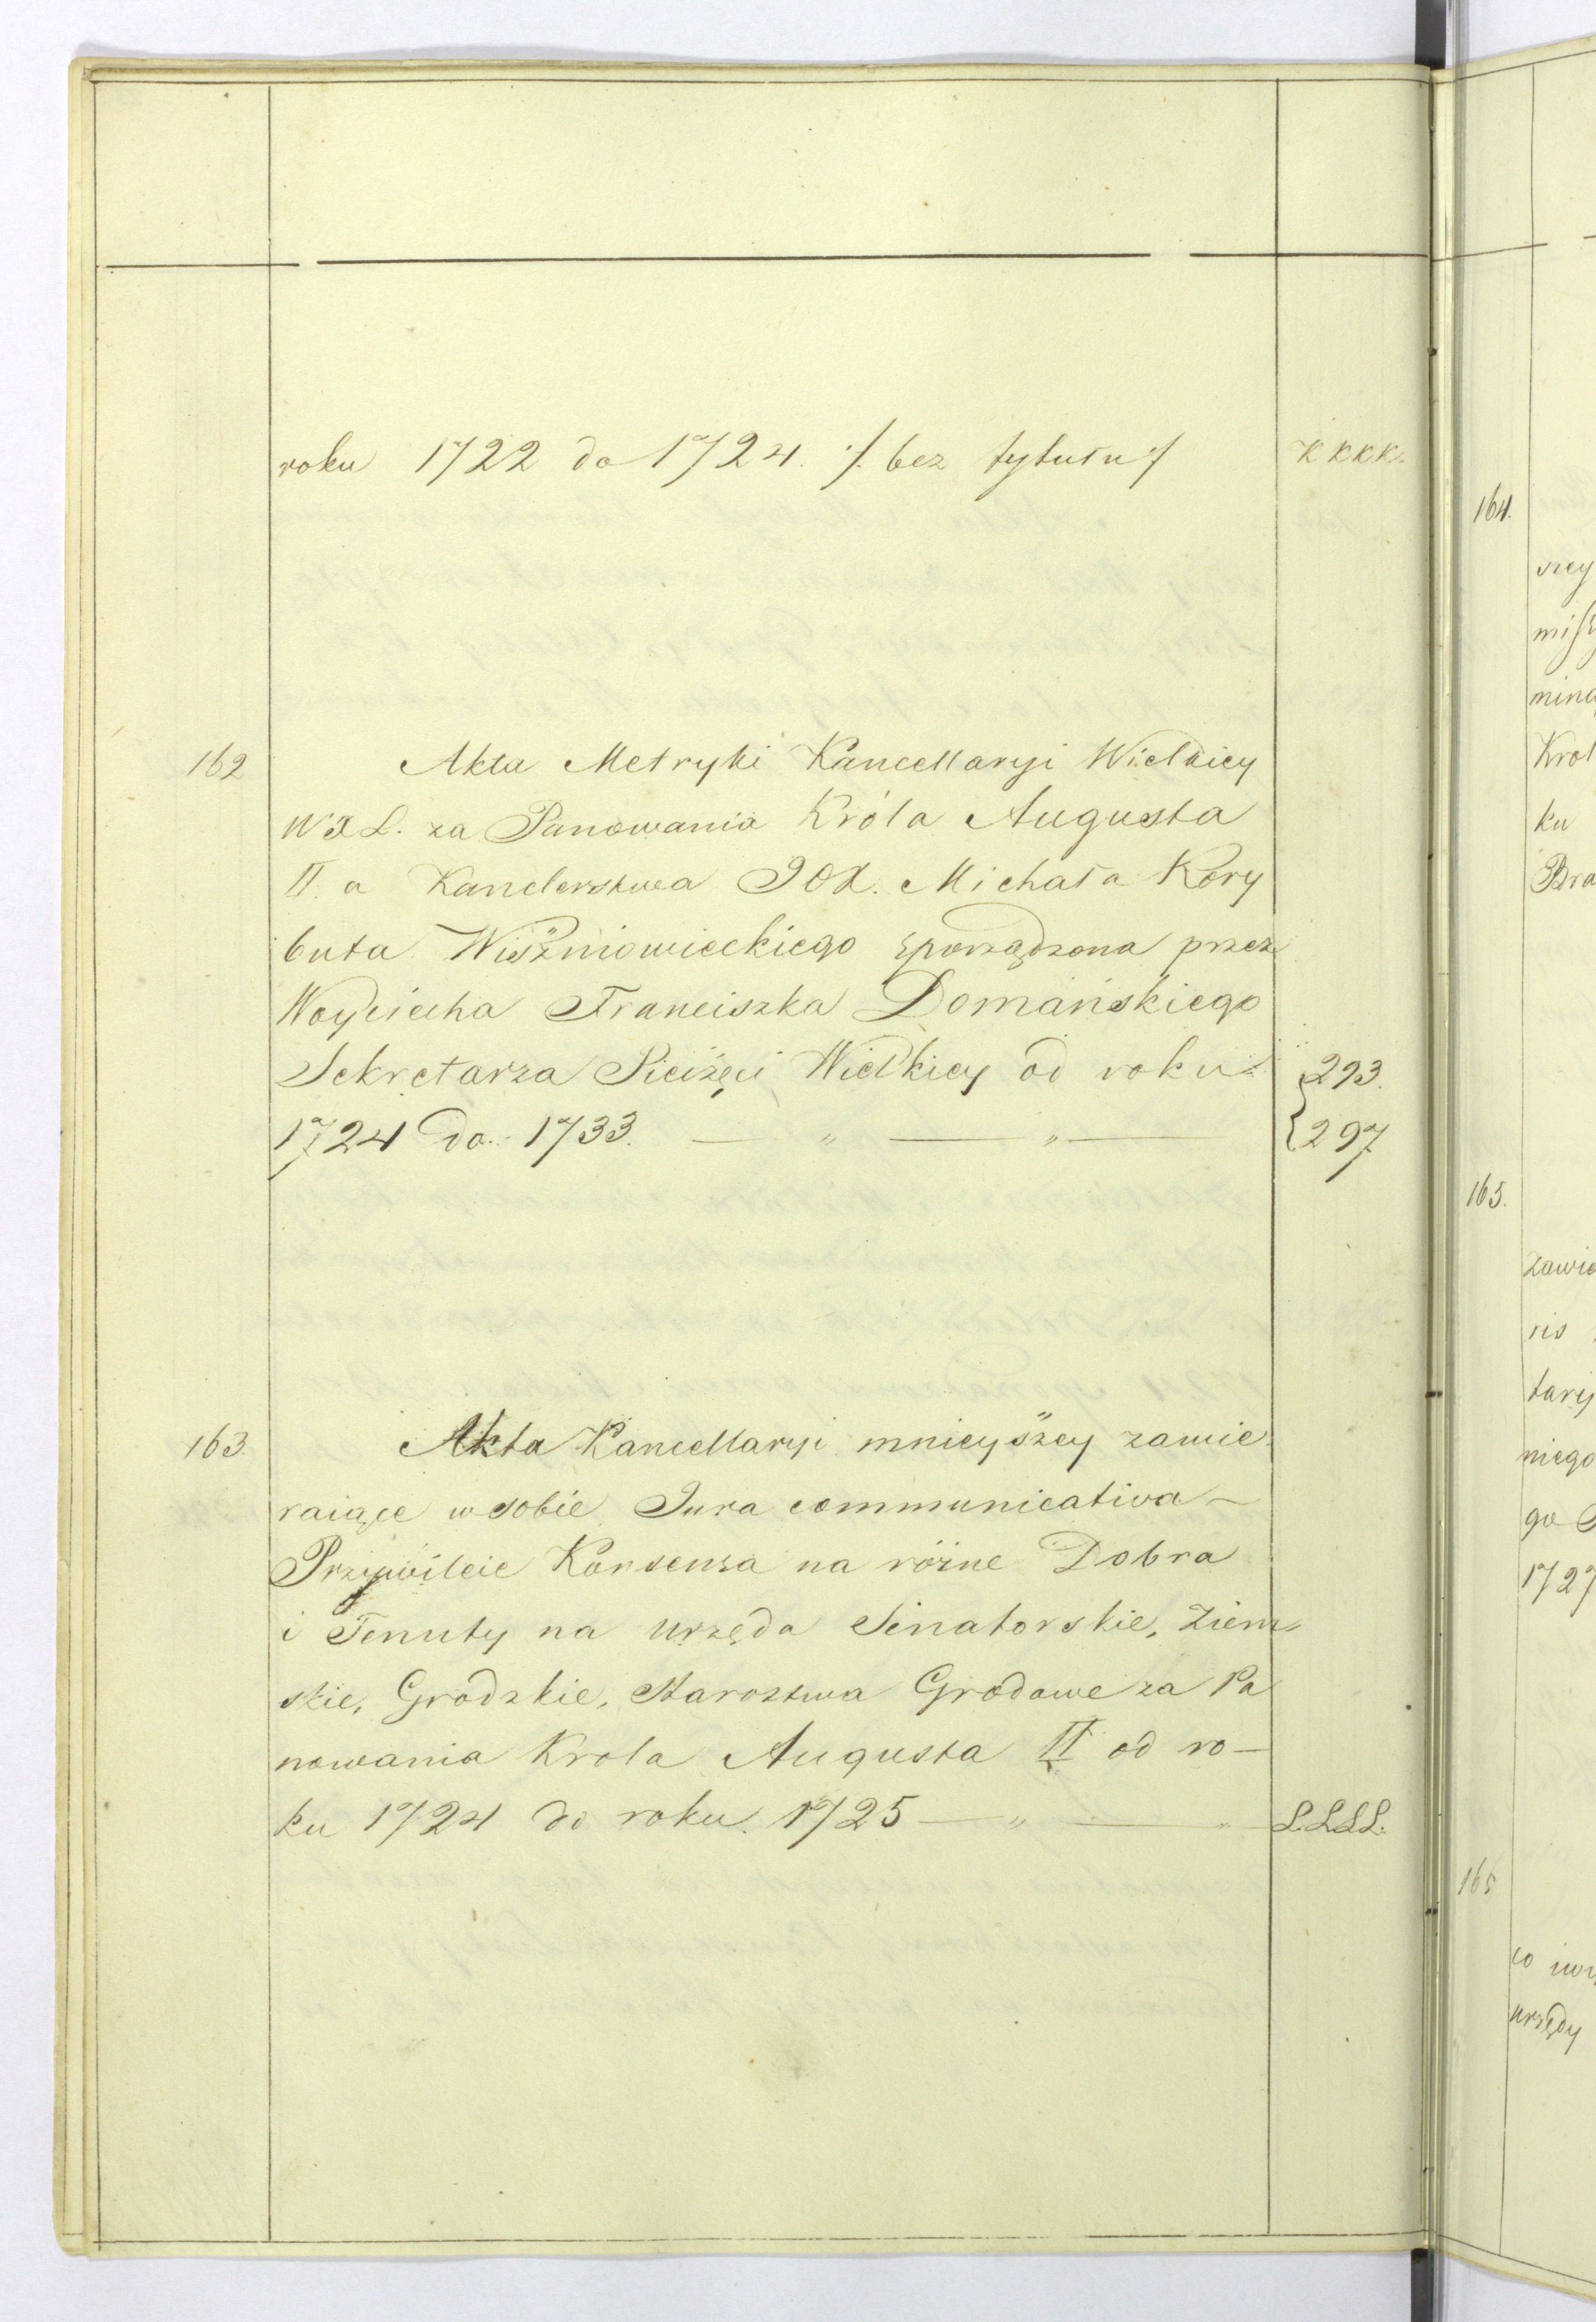 roku 1722 do 1724. ./. bez tytułu ./ KKKK.
162 Akta Metryki Kancellaryi Wielkiey
WXL. za Panowania Króla Augusta
II. a Kanclerstwa JOX. Michała Kory
buta Wiszniowieckiego sporządzona przez
Woyciecha Franciszka Domańskiego
Sekretarza Pieczęci Wielkiey od roku 293.
1724 do 1733. — " — " — 297
163. Akta Kancellaryi mnieyszey zawie
raiące w sobie Jura communicativa —
Przywileie Konsensa na różne Dobra
i Tenuty na urzęda Senatorskie, Ziem
skie, Grodzkie, Starostwa Grodowe za Pa
nowania Krola Augusta II od ro—
ku 1724 do roku 1725 — " — " L.L.L.L.
164.
szey
miná
Krol
ku
Bra
165.
zawie
ris
tary
niego
go
1727
165
co
urzędy